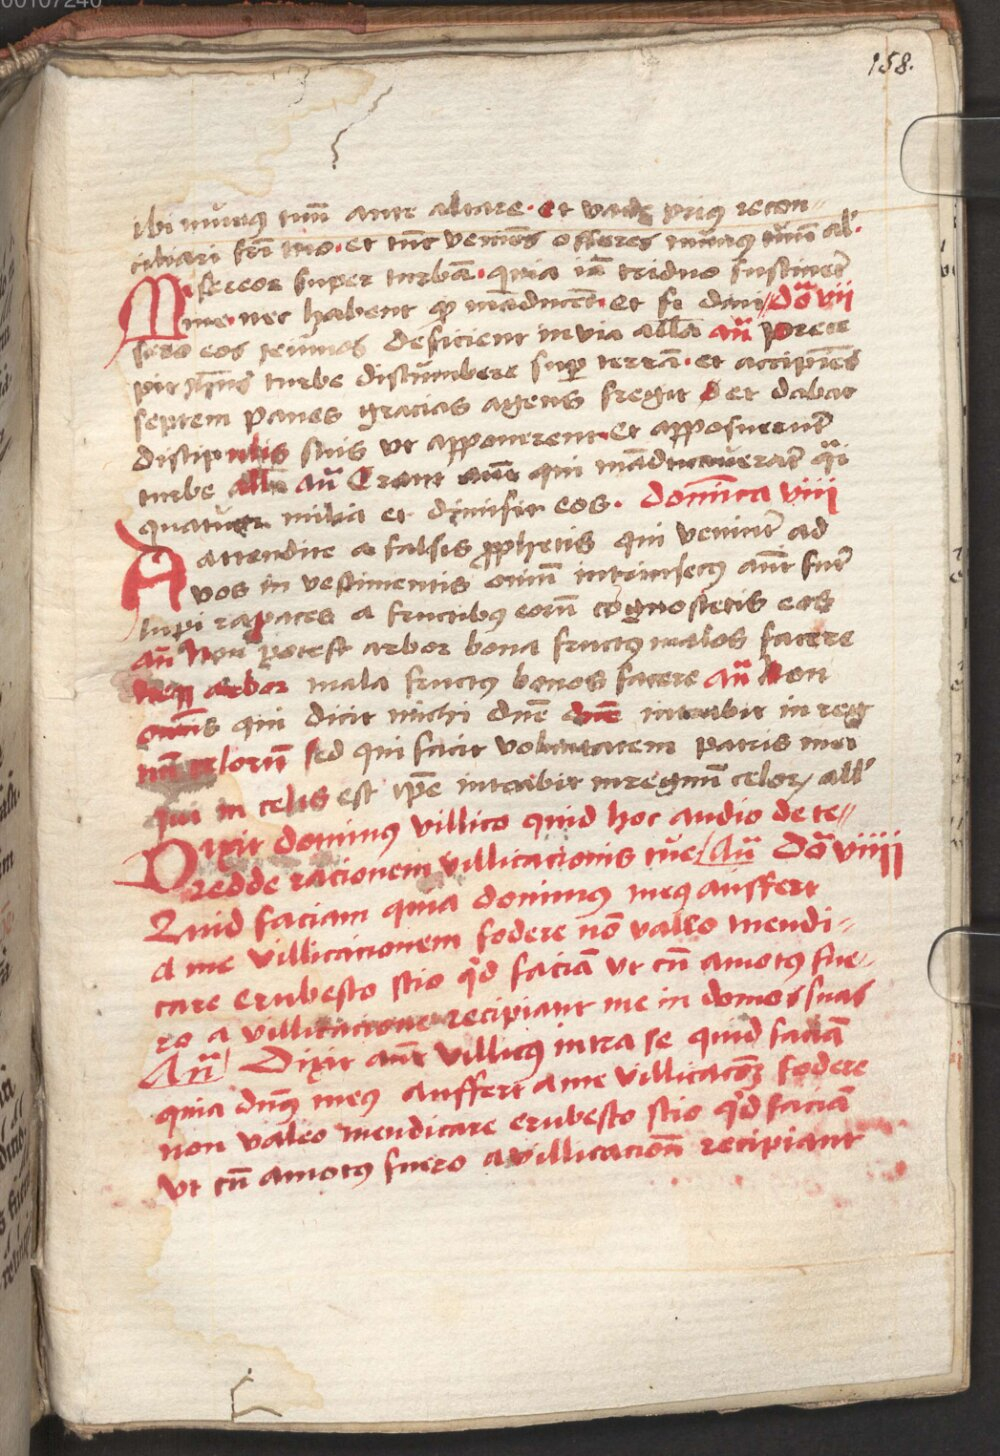 00107240
158.
ibi munus tuũ ante altare · et vade prius recon〃
ciliari fri tuo · et tũc veniẽs offeres munus tuũ al̃·
Misereor super turbã · quia iã triduo sustinet̃
me · nec habent qᷓ mãducẽt · et si dimi〃 dõ vii
sero eos ieiunos deficient in via allã añ prece
pit ih̃us turbe discumbere supͥ terrã · et accipiẽs
septem panes gracias agens fregit et dabat
discipulis suis ut apponerent · et apposuerunt̃
turbe all̃ añ Erant aũt qui mãducauerãt qᷓi
quatuor milia et dimisit eos · dominica viii
Attendite a falsis ꝓphetis qui veniunt̃ ad
vos in vestimentis ouiũ intrinsecus aũt sunt̃
lupi rapaces a fructibus eorũ cognoscetis eos
añ Non potest arbor bona fructus malos facere
neqꝫ arbor mala fructus bonos facere añ Non
omnis qui dicit michi dñe dñe intrabit in reg
nũ celorũ sed qui facit voluntatem patris mei
qui in celis est ip̃e intrabit in regnũ celoꝝ all̃
Dixit dominus villico quid hoc audio de te〃
redde racionem villicacionis tue Añ dõ viiii
Quid faciam quia dominus meus auffert
a me villicacionem fodere nõ valeo mendi〃
care erubesco scio qͥd faciã ut cũ amotus fue〃
ro a villicacione recipiant me in domos suas
Añ Dixit aũt villicus intra se quid faciã
quia dñus meus auffert a me villicacõꝫ fodere
non valeo mendicare erubesco scio qͥd faciã
ut cũ amotus fuero a villicacionẽ recipiant